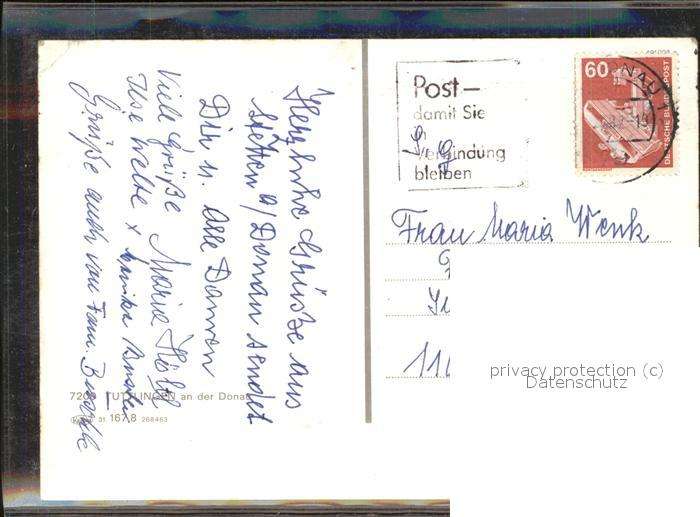 Herzliche Grüße aus
Stetten a/Donau sendet
Dir u. alle Damen
Viele Grüße Maria Hölzl
Ilse Welte x
Grüße auch von Fam.
7200 TUTTLINGEN an der Donau
31 167,8 268463
Post-
damit Sie
in
Verbindung
bleiben
60
DEUTSCHE BUNDESPOST
NAU
Frau Maria Wenk
privacy protection (c)
Datenschutz